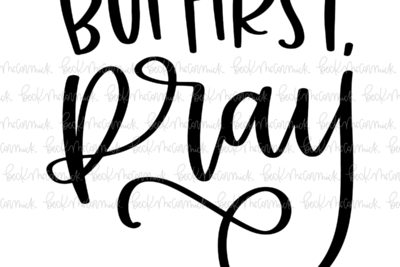 BUT FIRST,
pray